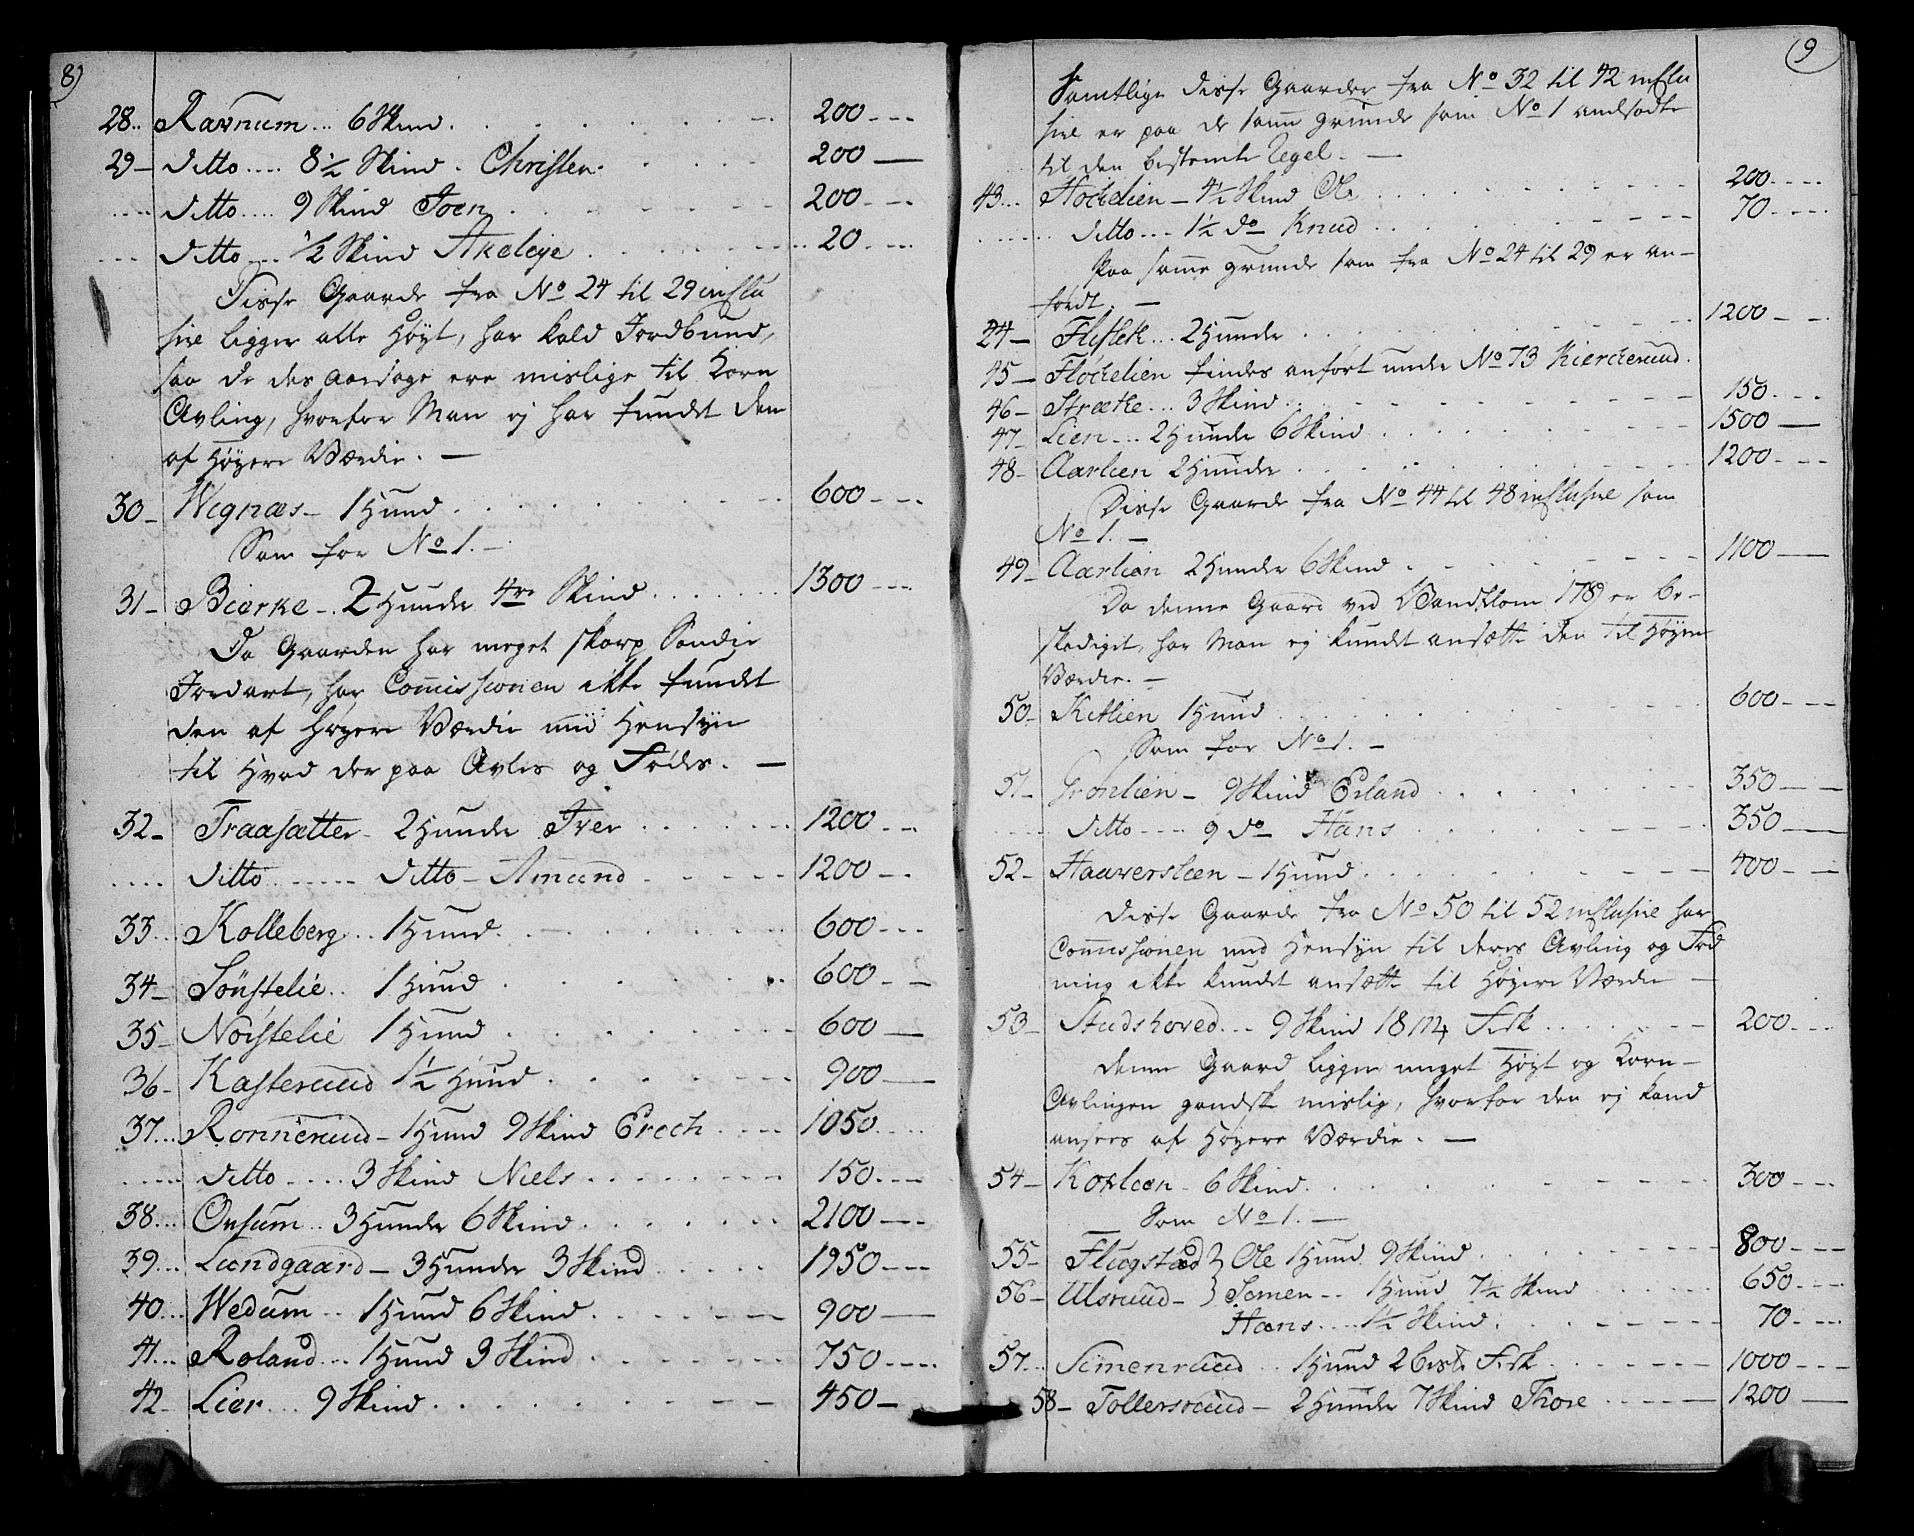 8)
28.. Ravnum... 6 Skind. 200 ---
29 — ditto.... 8½ Skind. Christen. 200 —
.... ditto.... 9 Skind Joen 200 ---
--- ditto.... ½ Skind Akeleye 20 ---
Disse Gaarde fra No 24 til 29 inclu
sive ligger alle Høyt, har kold Jordbund,
saa de des Aarsage ere mislige til Korn
Avling, hvorfor Man ej har fundet dem
af Høyere Værdie. —
30 — Wegnæs — 1 Hund 600 ---
Som for No 1. —
31 — Bierke — 2 Hunde 4re Skind 1300 ---
Da Gaarden har meget skarp Sandig
Jordart, har Commissionen ikke fundet
den af høyere Værdie med Hensyn
til Hvad der paa Avles og Fødes. —
32 — Traasætter — 2 Hunde Iver 1200 --
.... ditto ...... ditto — Amund 1200 --
33... Kolleberg... 1 Hund 600 ---
34 — Sönstelie.. 1 Hund 600 --
35 — Norstelie 1 Hund 600 —
36 — Kasterund 1½ Hund 900 —
37... Ronnerud — 1 Hund 9 Skind Erech 1050
ditto .... 3 Skind Niels 150 ---
38... Onsum.. 3 Hunde 6 Skind 2100 ---
39... Lundgaard — 3 Hunde 3 Skind 1950 ---
40... Wedum... 1 Hund 6 Skind 900 —
41... Roland... 1 Hund 3 Skind 750 ---
42 — Lier... 9 Skind 450 —
(9
Samtlige disse Gaarder fra No 32 til 42 inclu
sive er paa de samme grunde som No 1 andsadte
til den bestemte Regel. —
43... Hochlien — 4½ Skind Ole 200 ----
ditto... 1½ do Knud 70 ----
Paa samme grunde som fra No 24 til 29 er an-
fördt. —
44 — Flislek... 2 Hunde 1200 ---
45 — Flochlien findes anfört under No 73 Kiercherud.
46 — Strætte... 3 Skind 150 ---
47 — Lien... 2 Hunde 6 Skind 1500 —
48 — Aarlien 2 Hunde 1200 ---
Disse Gaarde fra No 44 til 48 inclusive som
No 1. —
49 — Aarlien 2 Hunde 6 Skind 1100 —
Da denne Gaard ved Vandflom 1789 er be-
skadiget, har Man ej kundet ansætte den til Høyere
Værdie. —
50 — Kitlien 1 Hund 600 ---
Som for No 1. —
51 — Grönlien — 9 Skind Erland 350 —
ditto .... 9 do Hans 350 —
52 — Haaverslien — 1 Hund 400 --
Disse Gaarde fra No 50 til 52 inclusive har
Commissionen med Hensyn til deres Avling og Föd
ning ikke kundet ansætte til Høyere Værdie —
53 — Studshoved... 9 Skind 18 Mk Fisk 200 ---
Denne Gaard ligger meget Høyt og Korn-
Avlingen gandske mislig, hvorfor den ej kand
ansees af Høyere Værdie. —
54 — Korlien 6 Skind 300 ---
Som No 1. —
55 — Flugstad } Ole 1 Hund 9 Skind 800 ---
56 — Ulsrud — } Semen — 1 Hund 7½ Skind 650 ---
Hans.... 1½ Skind 70 ---
57... Simenrud .. 1 Hund 2 Bist Fisk 1000 ---
58 — Tollersrud — 2 Hunde 7 Skind Thore 1200 —